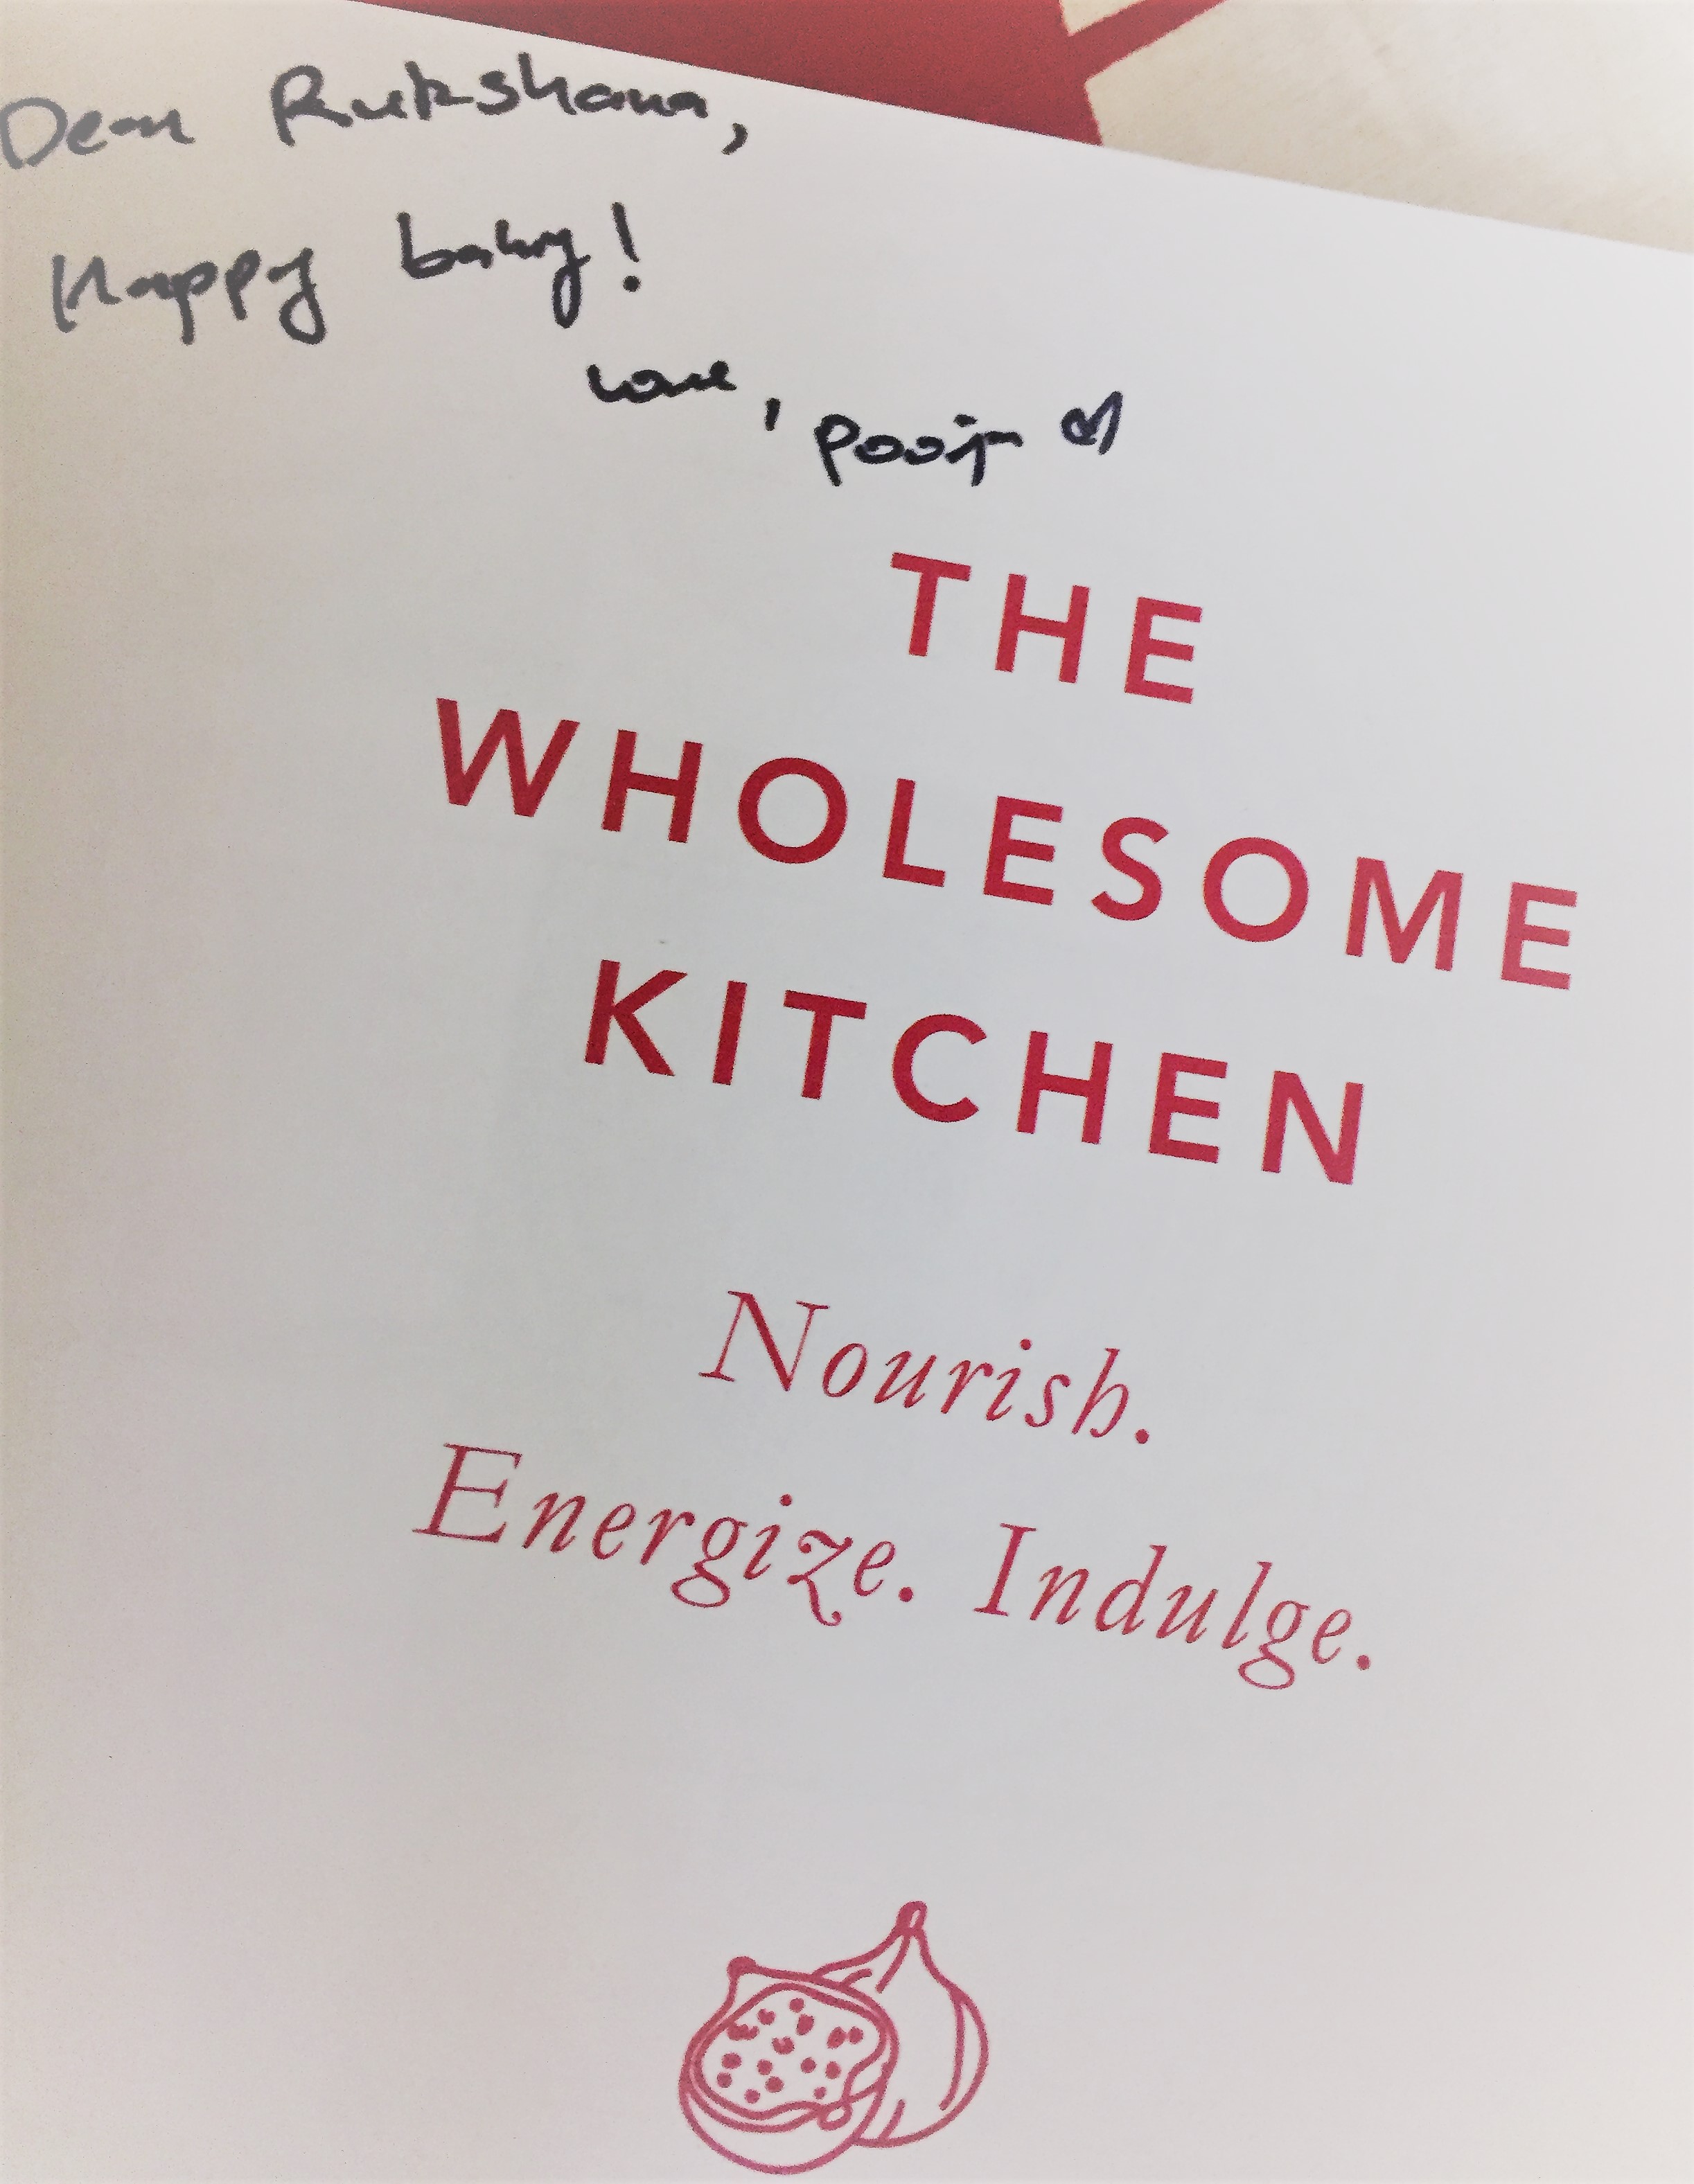 Dear Rukshana,
Happy baking!
Love, Pooja
THE
WHOLESOME
KITCHEN
Nourish.
Energize. Indulge.